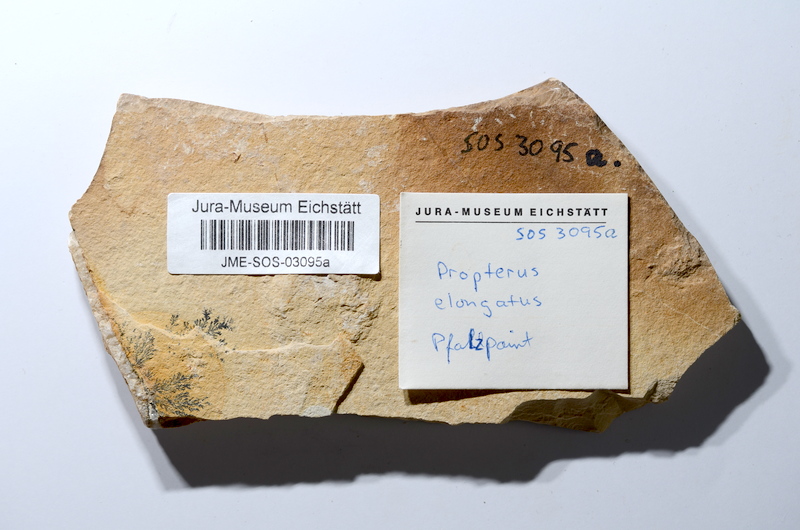 SOS 3095 a.
Jura-Museum Eichstätt
JME-SOS-03095a
JURA-MUSEUM EICHSTÄTT
SOS 3095a
Propterus
elongatus
Pfalzpaint